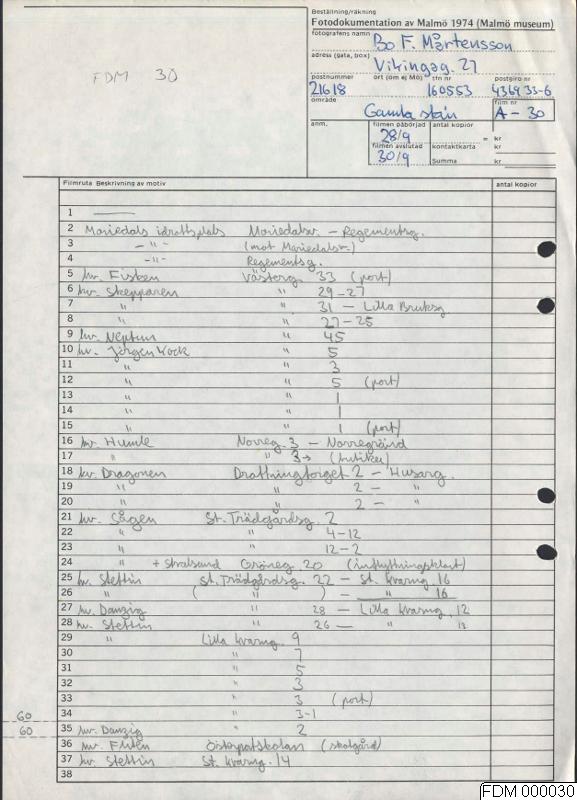 Beställning/räkning
Fotodokumentation av Malmö 1974 (Malmö museum)
fotografens namn
Bo F. Mårtensson
adress (gata, box)
Vikingag. 27
postnummer ort (om ej Mö) tfn nr postgiro nr
21618 160553 436933-6
område film nr
Gamla stan A-30
anm. filmen påbörjad antal kopior
28/9 = kr
filmen avslutad kontaktkarta kr
30/9 Summa kr
FDM 30
Filmruta Beskrivning av motiv antal kopior
1 ———
2 Mariedals idrottsplats Mariedalsv. - Regementsg.
3 - " - (mot Mariedalsv.)
4 - " - Regementsg.
5 kv. Fisken Västerg. 33 (port)
6 kv. Skepparen " 29-27
7 " " 31 - Lilla Bruksg
8 " " 27-25
9 kv. Neptun " 45
10 kv. Jörgen Kock " 5
11 " " 3
12 " " 5 (port)
13 " " 1
14 " " 1
15 " " 1 (port)
16 kv. Humle Norreg. 3 - Norregränd
17 " " 3→ (butiker)
18 kv. Dragonen Drottningtorget 2 - Husarg.
19 " " 2 - "
20 " " 2 - "
21 kv. Sågen St. Trädgårdsg. 2
22 " " 4-12
23 " " 12-2
24 " + Stralsund Gröneg. 20 (inflyttningsklart)
25 kv. Stettin St. Trädgårdsg. 22 - St. Kvarng. 16
26 " ( " ) - " 16
27 kv. Danzig " 28 - Lilla Kvarng. 12
28 kv. Stettin " 26 — "
29 " Lilla Kvarng. 9
30 " 7
31 " 5
32 " 3
33 " 3 (port)
60
34 " 3-1
60
35 kv. Danzig " 2
36 kv. Österportskolan (skolgård)
37 kv. Stettin St. Kvarng. 14
38
FDM 000030